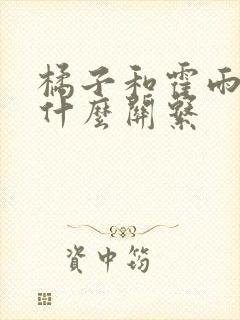 橘子和霍雨
什麼關繫
資中筠